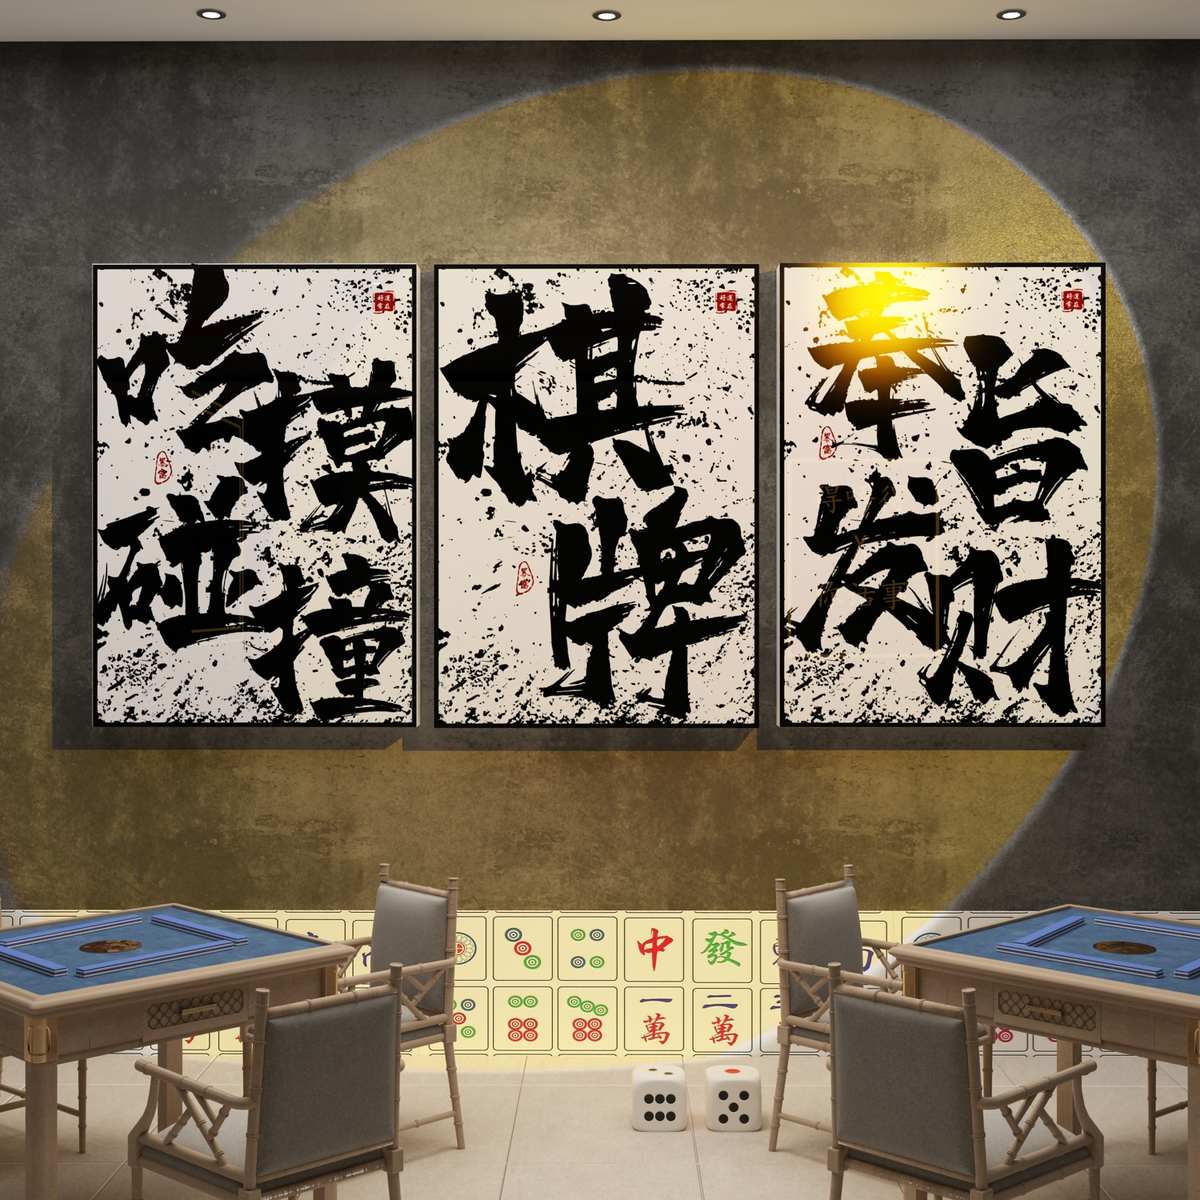 吃
摸
碰
撞
棋
牌
奉
旨
发
财
中
發
一
萬
二
萬